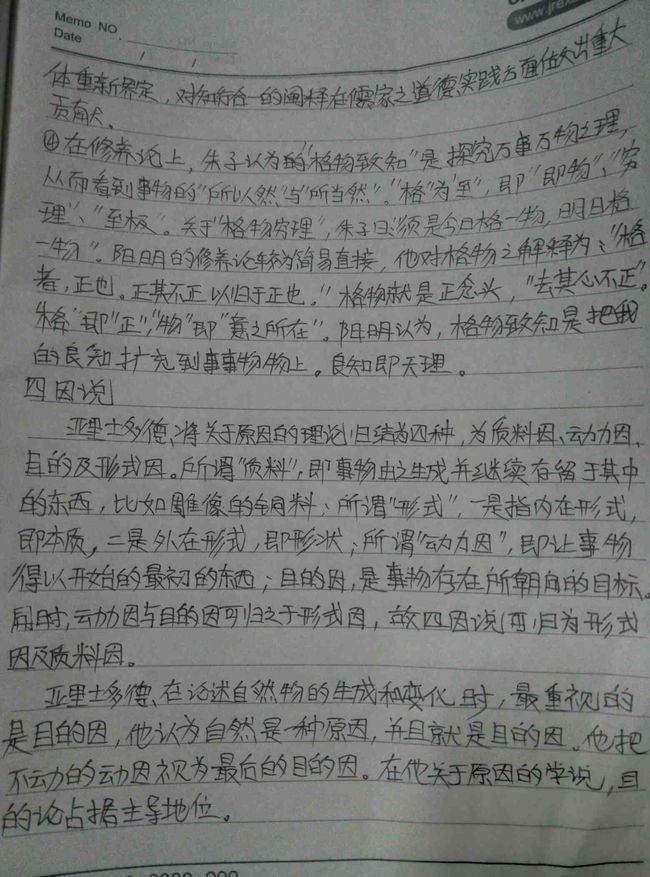 Memo NO.
Date / /
www.jrex
体重新界定，对知行合一的阐释在儒家之道德实践方面做出重大
贡献。
④在修养论上，朱子认为的“格物致知”是探究万事万物之理，
从而看到事物的“所以然”与“所当然”。“格”为“至”，即“即物”、“穷
理”、“至极”。关于“格物穷理”，朱子曰：“须是今日格一物，明日格
一物”。阳明的修养论较为简易直接，他对格物之解释为：“格
者，正也。正其不正以归于正也。”格物就是正念头，“去其心不正”。
“格”即“正”，“物”即“意之所在”。阳明认为，格物致知是把我
的良知扩充到事事物物上。良知即天理。
四因说
亚里士多德将关于原因的理论归结为四种，为质料因、动力因、
目的及形式因。所谓“质料”，即事物由之生成并继续存留于其中
的东西，比如雕像的铜料；所谓“形式”，一是指内在形式，
即本质，二是外在形式，即形状；所谓“动力因”，即让事物
得以开始的最初的东西；目的因，是事物存在所朝向的目标。
同时，动力因与目的因可归之于形式因，故四因说可归为形式
因及质料因。
亚里士多德在论述自然物的生成和变化时，最重视的
是目的因，他认为自然是一种原因，并且就是目的因。他把
不动的动因视为最后的目的因。在他关于原因的学说，目
的论占据主导地位。